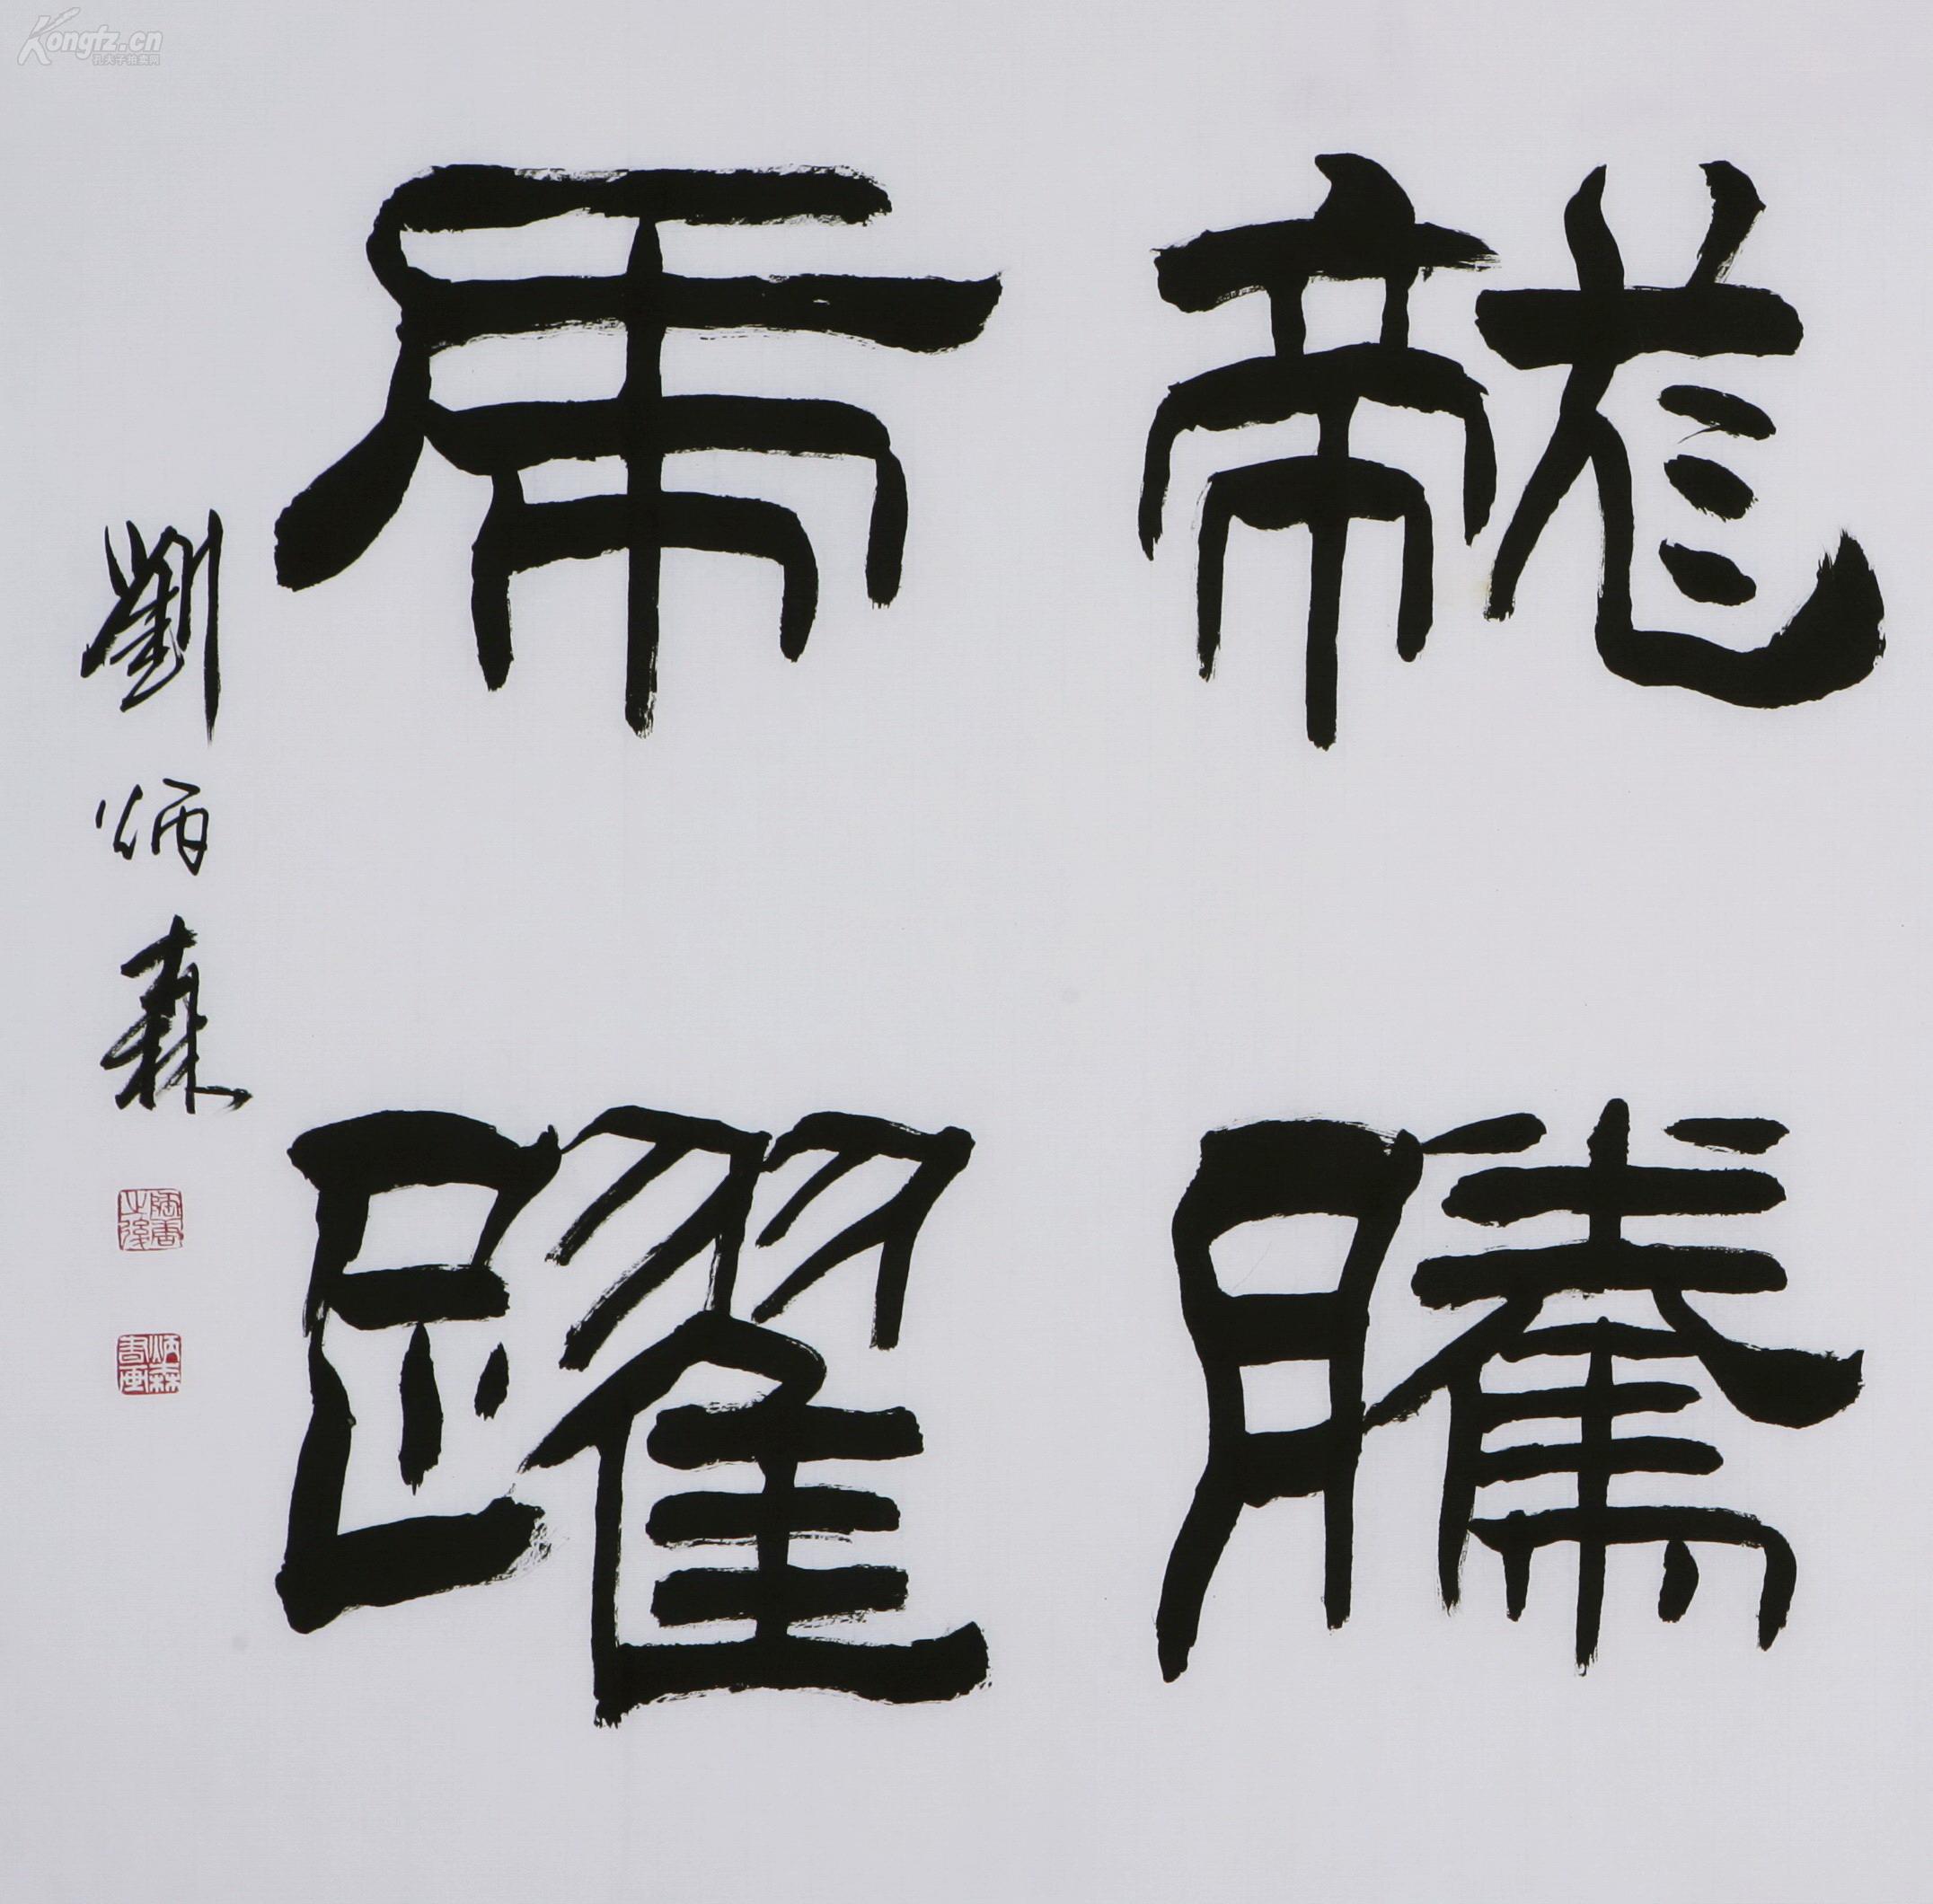 龍騰
虎躍
劉炳森
炳森書畫
Kongfz.cn
孔夫子拍卖网